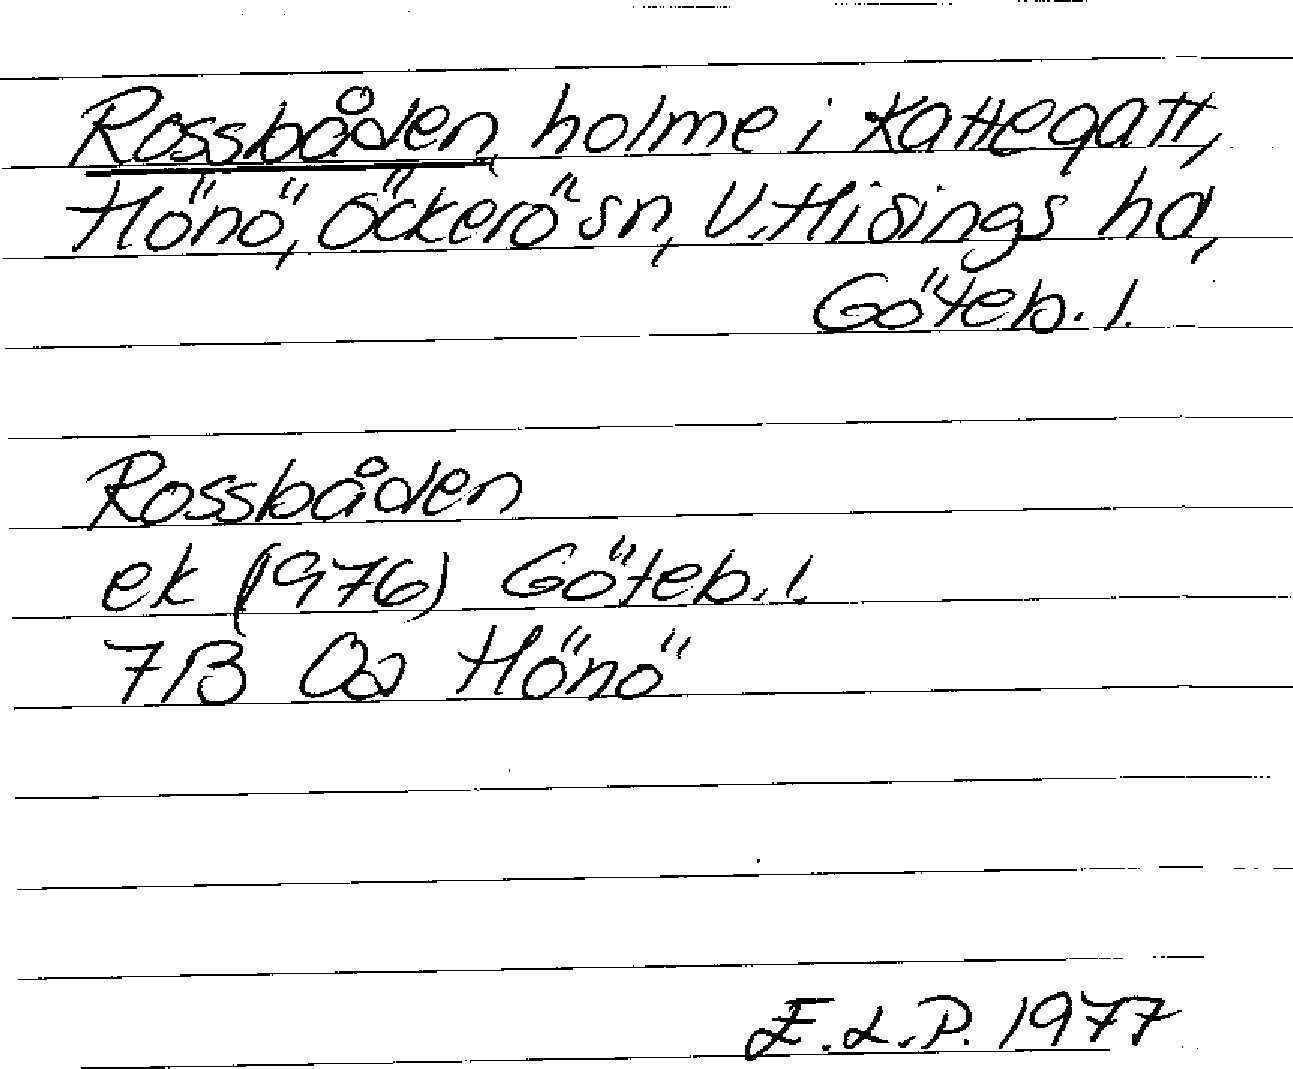 Rossbåden holme i Kattegatt,
Hönö, Öckerö sn, V. Hisings hd,
Göteb. l.
Rossbåden
ek (1976) Göteb. l.
7B 0a Hönö
E.L.P. 1977